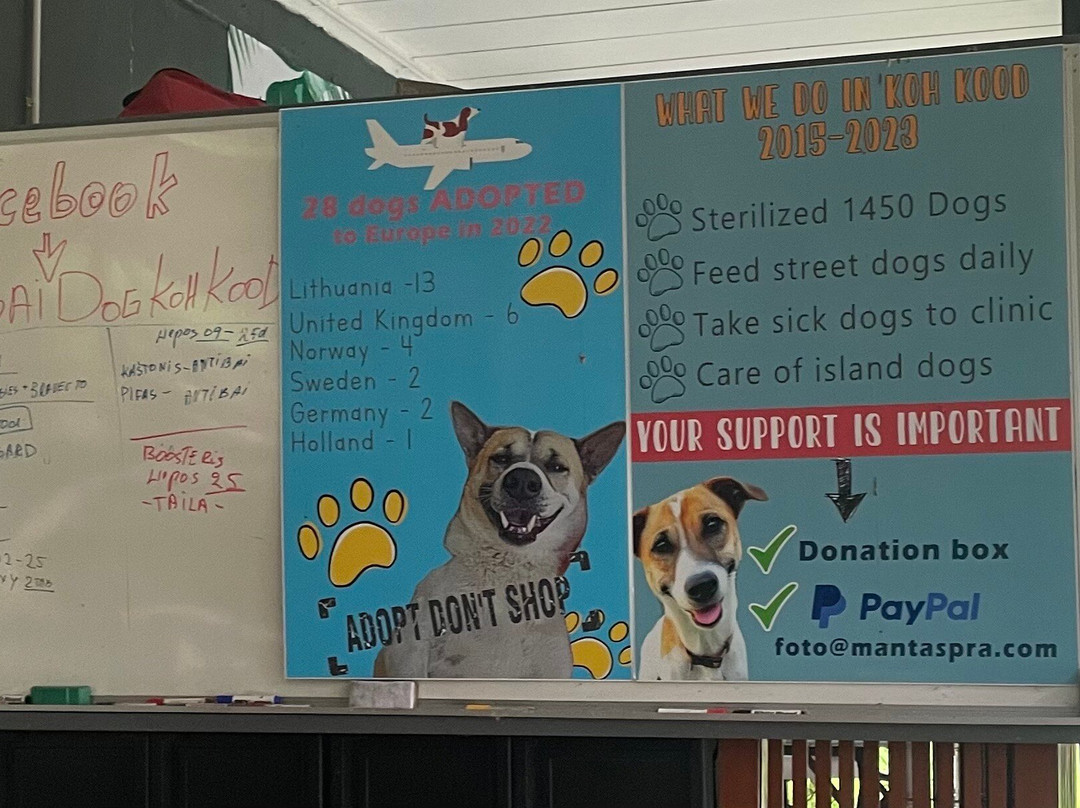 cebook
AI DOG KOH KOOD
liepos 09-
KAŠTONIS-ANTIBAI
PIFAS - ANTIBAI
BOOSTERIS
Liepos 25
-TAILA-
2-25
28 dogs ADOPTED
to Europe in 2022
Lithuania -13
United Kingdom - 6
Norway - 4
Sweden - 2
Germany - 2
Holland - 1
ADOPT DON'T SHOP
WHAT WE DO IN KOH KOOD
2015-2023
Sterilized 1450 Dogs
Feed street dogs daily
Take sick dogs to clinic
Care of island dogs
YOUR SUPPORT IS IMPORTANT
Donation box
PayPal
foto@mantaspra.com